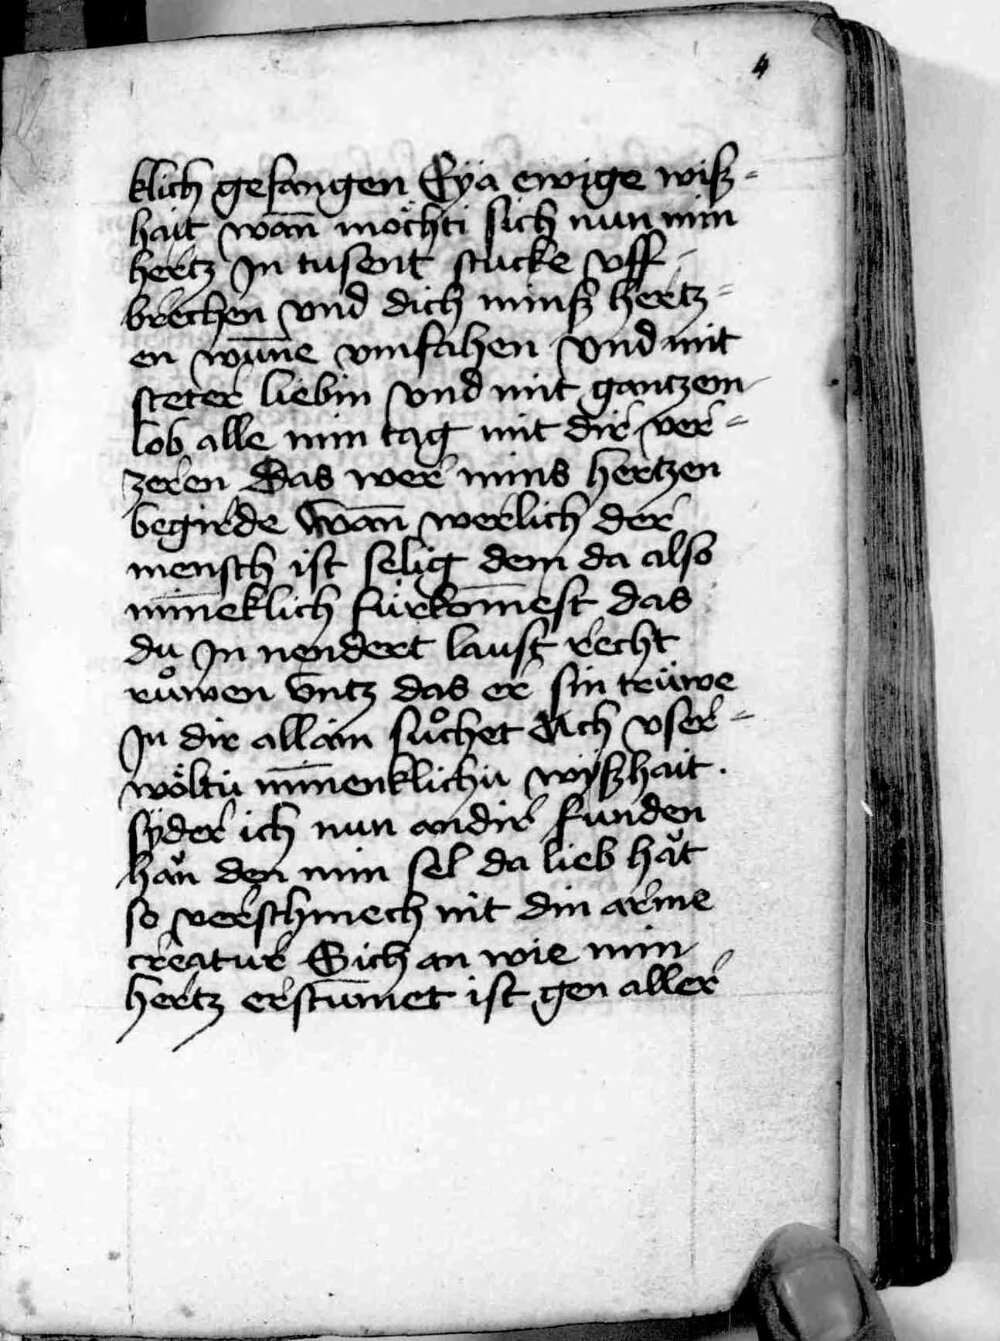 4
klich gefangen Eÿa ewige wiß-
hait wan̄ möchti sich nun min
hertz In tusent stucke vff
brechen vnd dich minß hertz-
en wun̄e vmfahen vnd mit
steter liebin vnd mit gantzem
lob alle min tag mit dir ver-
zeren Das wer mins hertzen
begirde Wan̄ werlich der
mensch ist selig dem da also
min̄eklich fürkom̄est das
du In nendert laust recht
ruͦwen vntz das er sin trüwe
In dir allain suͦchet Ach vser-
wöltü min̄enklichü wÿßhait.
sÿder ich nun an dir funden
haůn den min sel da lieb haůt
so verschmech nit din arme
creatur Sich an wie min
hertz erstum̄et ist gen aller